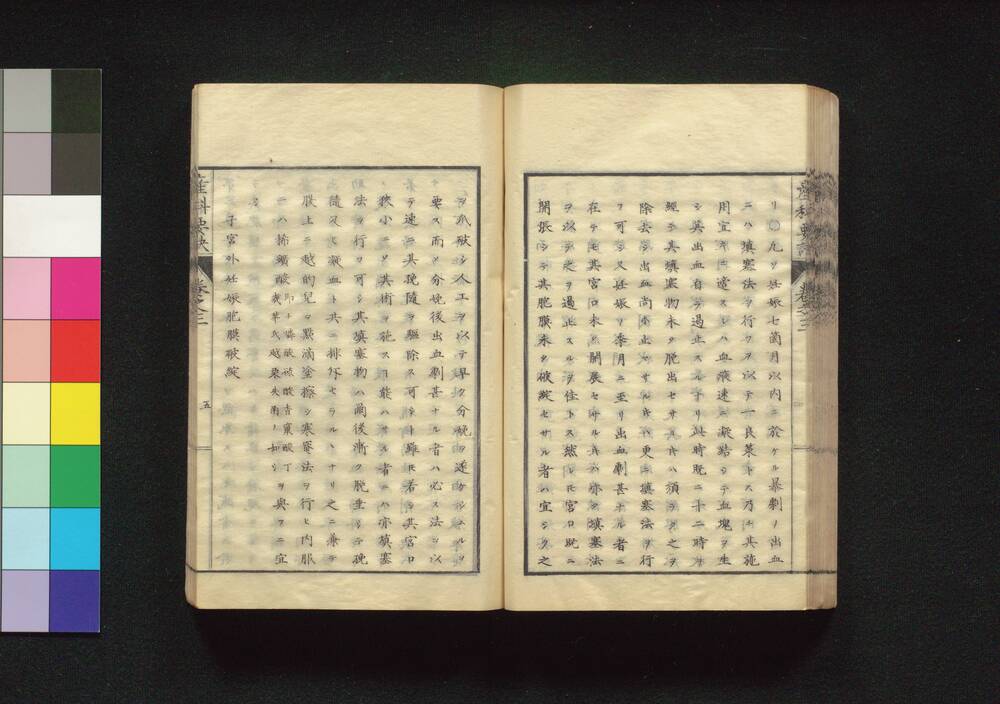 リ凡ソ妊娠七箇月以内ニ於ケル暴劇ノ出血
ニハ填塞法ヲ行フヲ以テ一良策トス乃チ其施
用宜キニ適スレハ血液速ニ凝結シテ血塊ヲ生
シ其出血自ラ遏止スルナリ此時既ニ十二時ヲ
經テ其填塞物未タ脱出セサル片ハ須ラク之ヲ
除去シ出血尚未止マサル片ハ更ニ填塞法ヲ行
フ可シ又妊娠ヲ漆月ニ至リ出血劇甚ナル者ニ
在テモ其宮口未タ開展セサル片ハ亦填塞法
ヲ以テ之ヲ遏止スルヲ佳トス然レ𪜈宮口既ニ
開張シテ其胞膜未タ破綻セサル者ハ宜シク之
ヲ爪破シ人工ヲ以テ早ク分娩ヲ遂ケシムルヲ
要ス而メ分娩後出血劇甚ナル者ハ必ス法ヲ以
テ速ニ其娩隨ヲ驅除ス可シト雖𪜈若シ其宮口
狹小ニメ其術ヲ施ス能ハサル者ニハ亦填塞
法ヲ行フ可シ其填塞物ハ爾後漸ク脱垂シテ娩
隨及ヒ凝血ト共ニ排外セラルヽナリ之ニ兼テ
腹上ニ越的兒ヲ點滴塗擦シ寒罨法ヲ行ヒ内服
ニハ稀礦酸
ヲ與フニ宜
子宮外妊娠胞膜破綻
産科要訣
卷之三
五